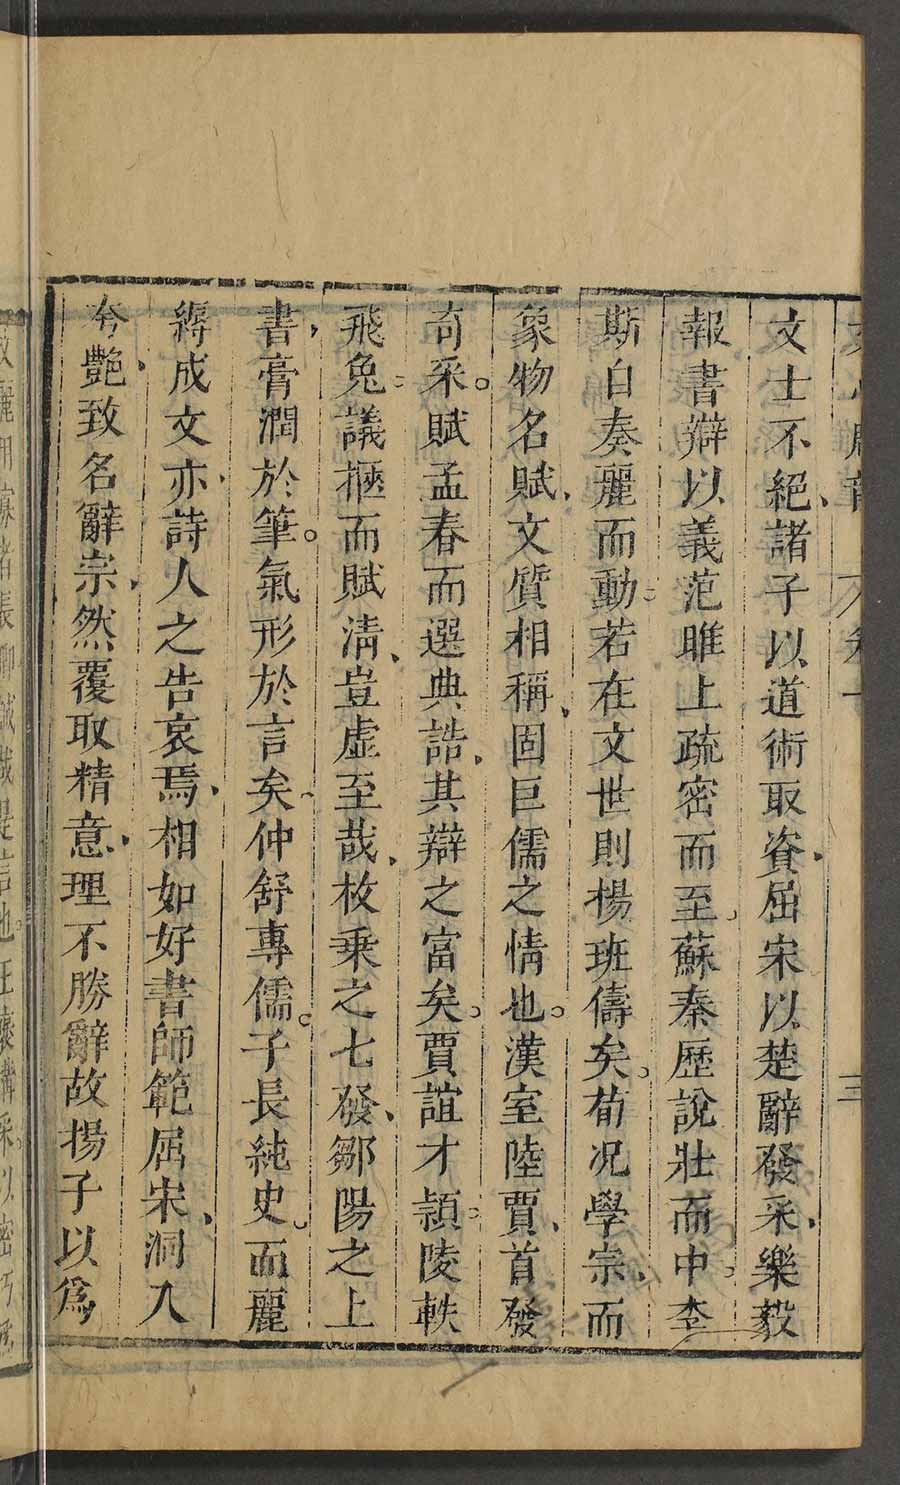 文士不絕諸子以道術取資屈宋以楚辭發采樂毅
報書辯以義范雎上疏密而至蘇秦歷說壯而中李
斯自奏麗而動若在文世則揚班儔矣荀况學宗而
象物名賦文質相稱固巨儒之情也漢室陸賈首發
奇采賦孟春而選典誥其辯之富矣賈誼才頴陵軼
飛兔議摧而賦清豈虛至哉枚乘之七發鄒陽之上
書膏潤於筆氣形於言矣仲舒專儒子長純史而麗
縟成文亦詩人之告哀焉相如好書師範屈宋洞入
夸艷致名辭宗然覆取精意理不勝辭故揚子以爲